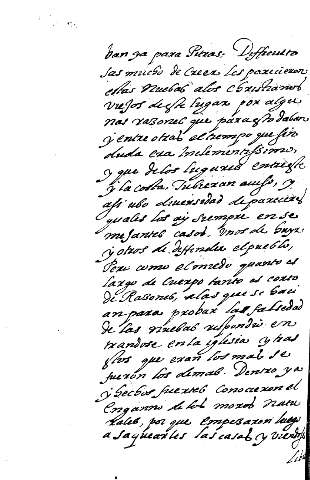 ban ya para Pieras. Difficulto
sas mucho de Creer les parecieron
estas Nuebas a los Christianos
viejos de este lugar por algu
nas razones que para esto daban
y entre otras el tiempo que sin
duda era Inclementissimo,
y que de los lugares entre este
y la costa Tubieran auiso, y
assi ubo diuersidad de parecere
quales los ay siempre en se
mejantes casos. Unos de huyr
y otros de diffender el pueblo,
Pero como el miedo quanto es
largo de Cuerpo tanto es corto
de Razones, a las que se haci
an para probar la falsedad
de las nuebas respondio en
trandose en la iglesia y tras
estos que eran los mas se
fueron los demas. Dentro ya
y hechos fuertes conocieron el
Enganno de los moros natu
rales, por que empezaron luego
a saquearles las casas, y viendose